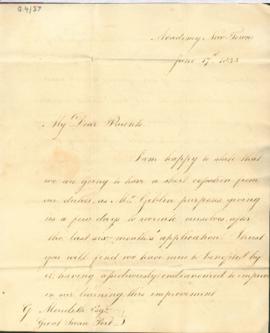 G4/37
Academy New Town
June 17th 1833
My Dear Parents
I am happy to state that
we are going to have a short cessation from
our duties, as Mr Giblin purposes giving
us a few days to recruit ourselves, after
the last six months' application. I trust
you will find we have much benefited by
it; having assiduously endeavoured to improve
in our learning this improvement
G Meredith Esqr
Great Swan Port